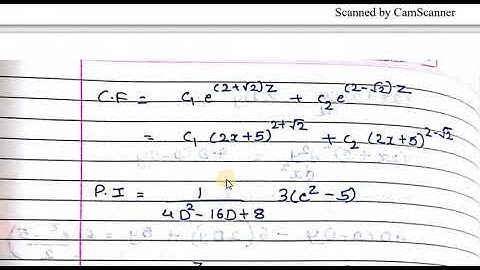 Scanned by CamScanner
C.F = C₁ e^{(2+√2)z} + C₂ e^{(2-√2)z}
= C₁ (2x+5)^{2+√2} + C₂ (2x+5)^{2-√2}
P.I = 1/(4D²-16D+8) 3(e^z - 5)